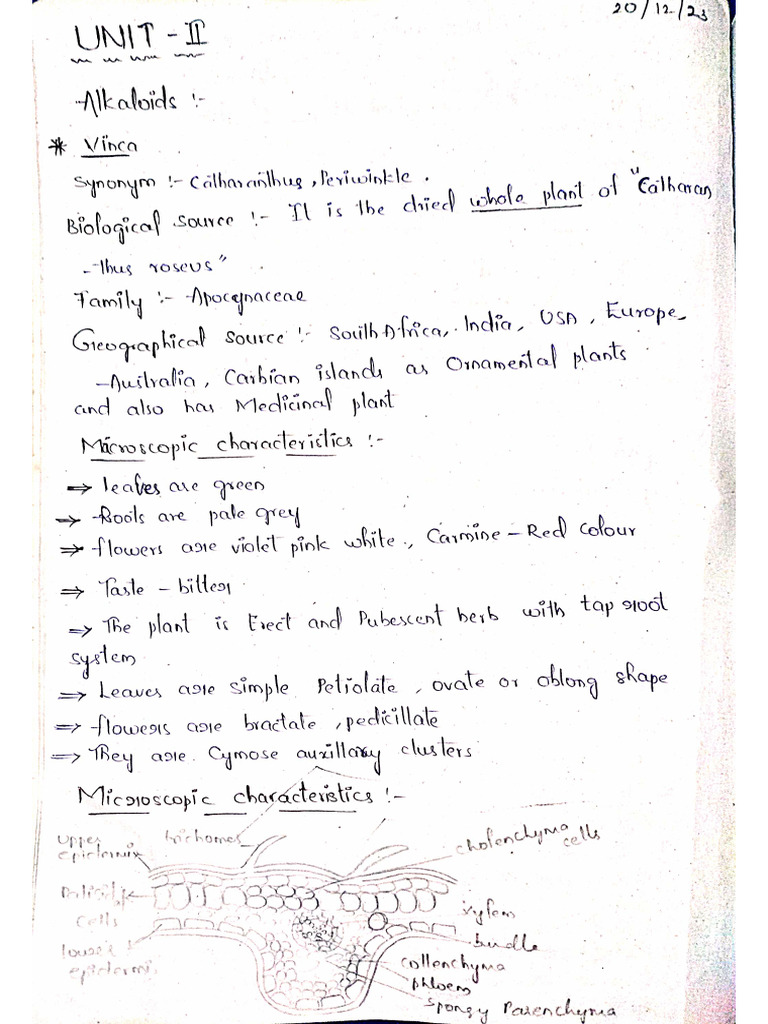 20/12/23
UNIT - II
Alkaloids :-
* Vinca
Synonym :- Catharanthus, Periwinkle.
Biological source :- It is the dried whole plant of "Catharan
-thus roseus"
Family :- Apocynaceae
Geographical source :- South Africa, India, USA, Europe,
Australia, Carbian islands as Ornamental plants
and also has Medicinal plant
Macroscopic characteristics :-
⇒ leaves are green
⇒ Roots are pale grey
⇒ flowers are violet pink white, Carmine - Red colour
⇒ Taste - bitter
⇒ The plant is Erect and Pubescent herb with tap root
system
⇒ Leaves are simple Petiolate, ovate or oblong shape
⇒ flowers are bractate, pedicillate
⇒ They are Cymose auxillary clusters
Microscopic characteristics :-
upper
epidermix
trichomes
cholenchyma
cells
cells
xylem
bundle
lower
epidermi
collenchyma
phloem
spongy Parenchyma